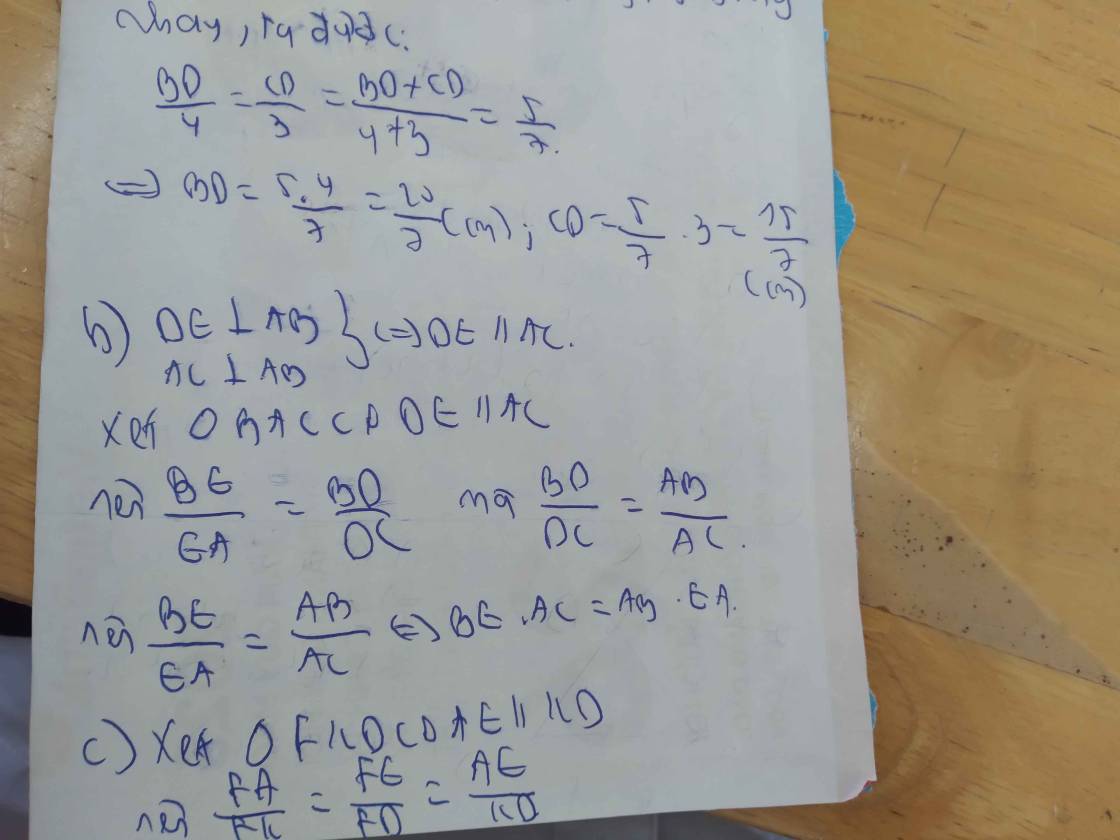 nhau, ta được:
BD/4 = CD/3 = BD+CD/4+3 = 5/7.
⇔ BD = 5.4/7 = 20/7 (cm); CD = 5/7 . 3 = 15/7
(cm)
b) DE ⊥ AB } ⇔ DE // AC.
AC ⊥ AB
Xét △ BAC có DE // AC
nên BE/EA = BD/DC mà BD/DC = AB/AC.
nên BE/EA = AB/AC ⇔ BE . AC = AB . EA.
c) Xét △ FKD có AE // KD
nên FA/FK = FE/FD = AE/KD